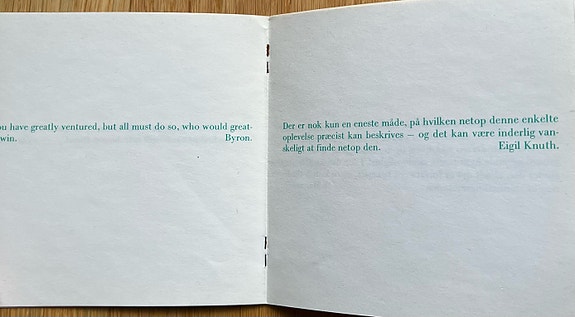 u have greatly ventured, but all must do so, who would great-
win. Byron.
Der er nok kun en eneste måde, på hvilken netop denne enkelte
oplevelse præcist kan beskrives – og det kan være inderlig van-
skeligt at finde netop den. Eigil Knuth.